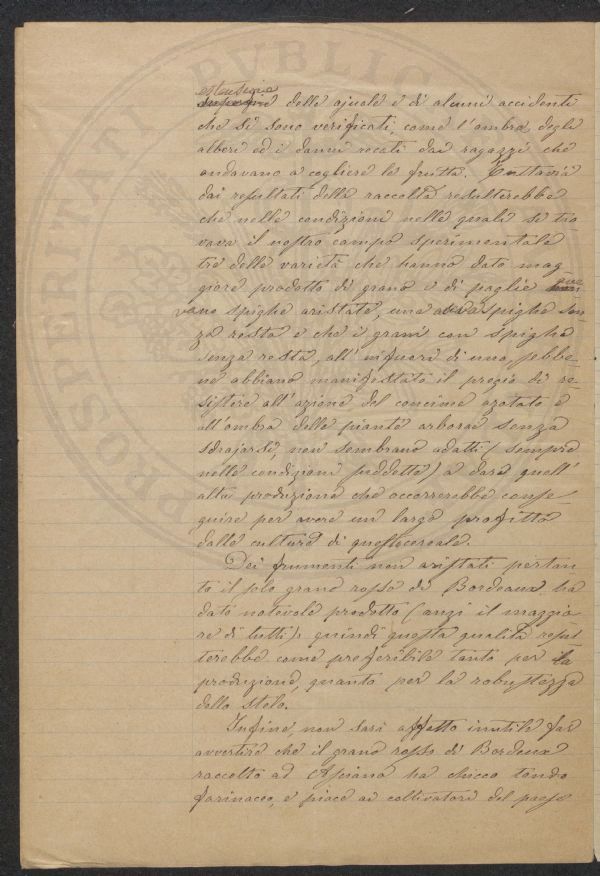 PROSPERITATI PVBLIC
estensione
superficie delle ajuole e di alcuni accidenti
che si sono verificati, come l'ombra degli
alberi ed i danni recati dai ragazzi che
andavano a cogliere le frutta. Tuttavia
dai resultati della raccolta resulterebbe
che nelle condizioni nelle quali si tro
vava il nostro campo sperimentale
tre delle varietà che hanno dato mag
giore prodotto di grano e di paglia ave
vano spighe aristate, una aveva spighe sen
za resta e che i grani con spighe
senza resta, all'infuori di uno, sebbe
ne abbiano manifestato il pregio di re
sistere all'azione del concime azotato e
all'ombra delle piante arboree senza
sdrajarsi, non sembrano adatti (sempre
nelle condizioni suddette) a dare quell'
alta produzione che occorrerebbe conse
guire per avere un largo profitto
dalle culture di questo cereale.
Dei frumenti non aristati pertan
to il solo grano rosso di Bordeaux ha
dato notevole prodotto (anzi il maggio
re di tutti): quindi questa qualità resul
terebbe come preferibile tanto per la
produzione, quanto per la robustezza
dello stelo.
Infine, non sarà affatto inutile far
avvertire che il grano rosso di Bordeaux
raccolto ad Asciano ha chicco tondo
farinaceo, e piace ai coltivatori del paese